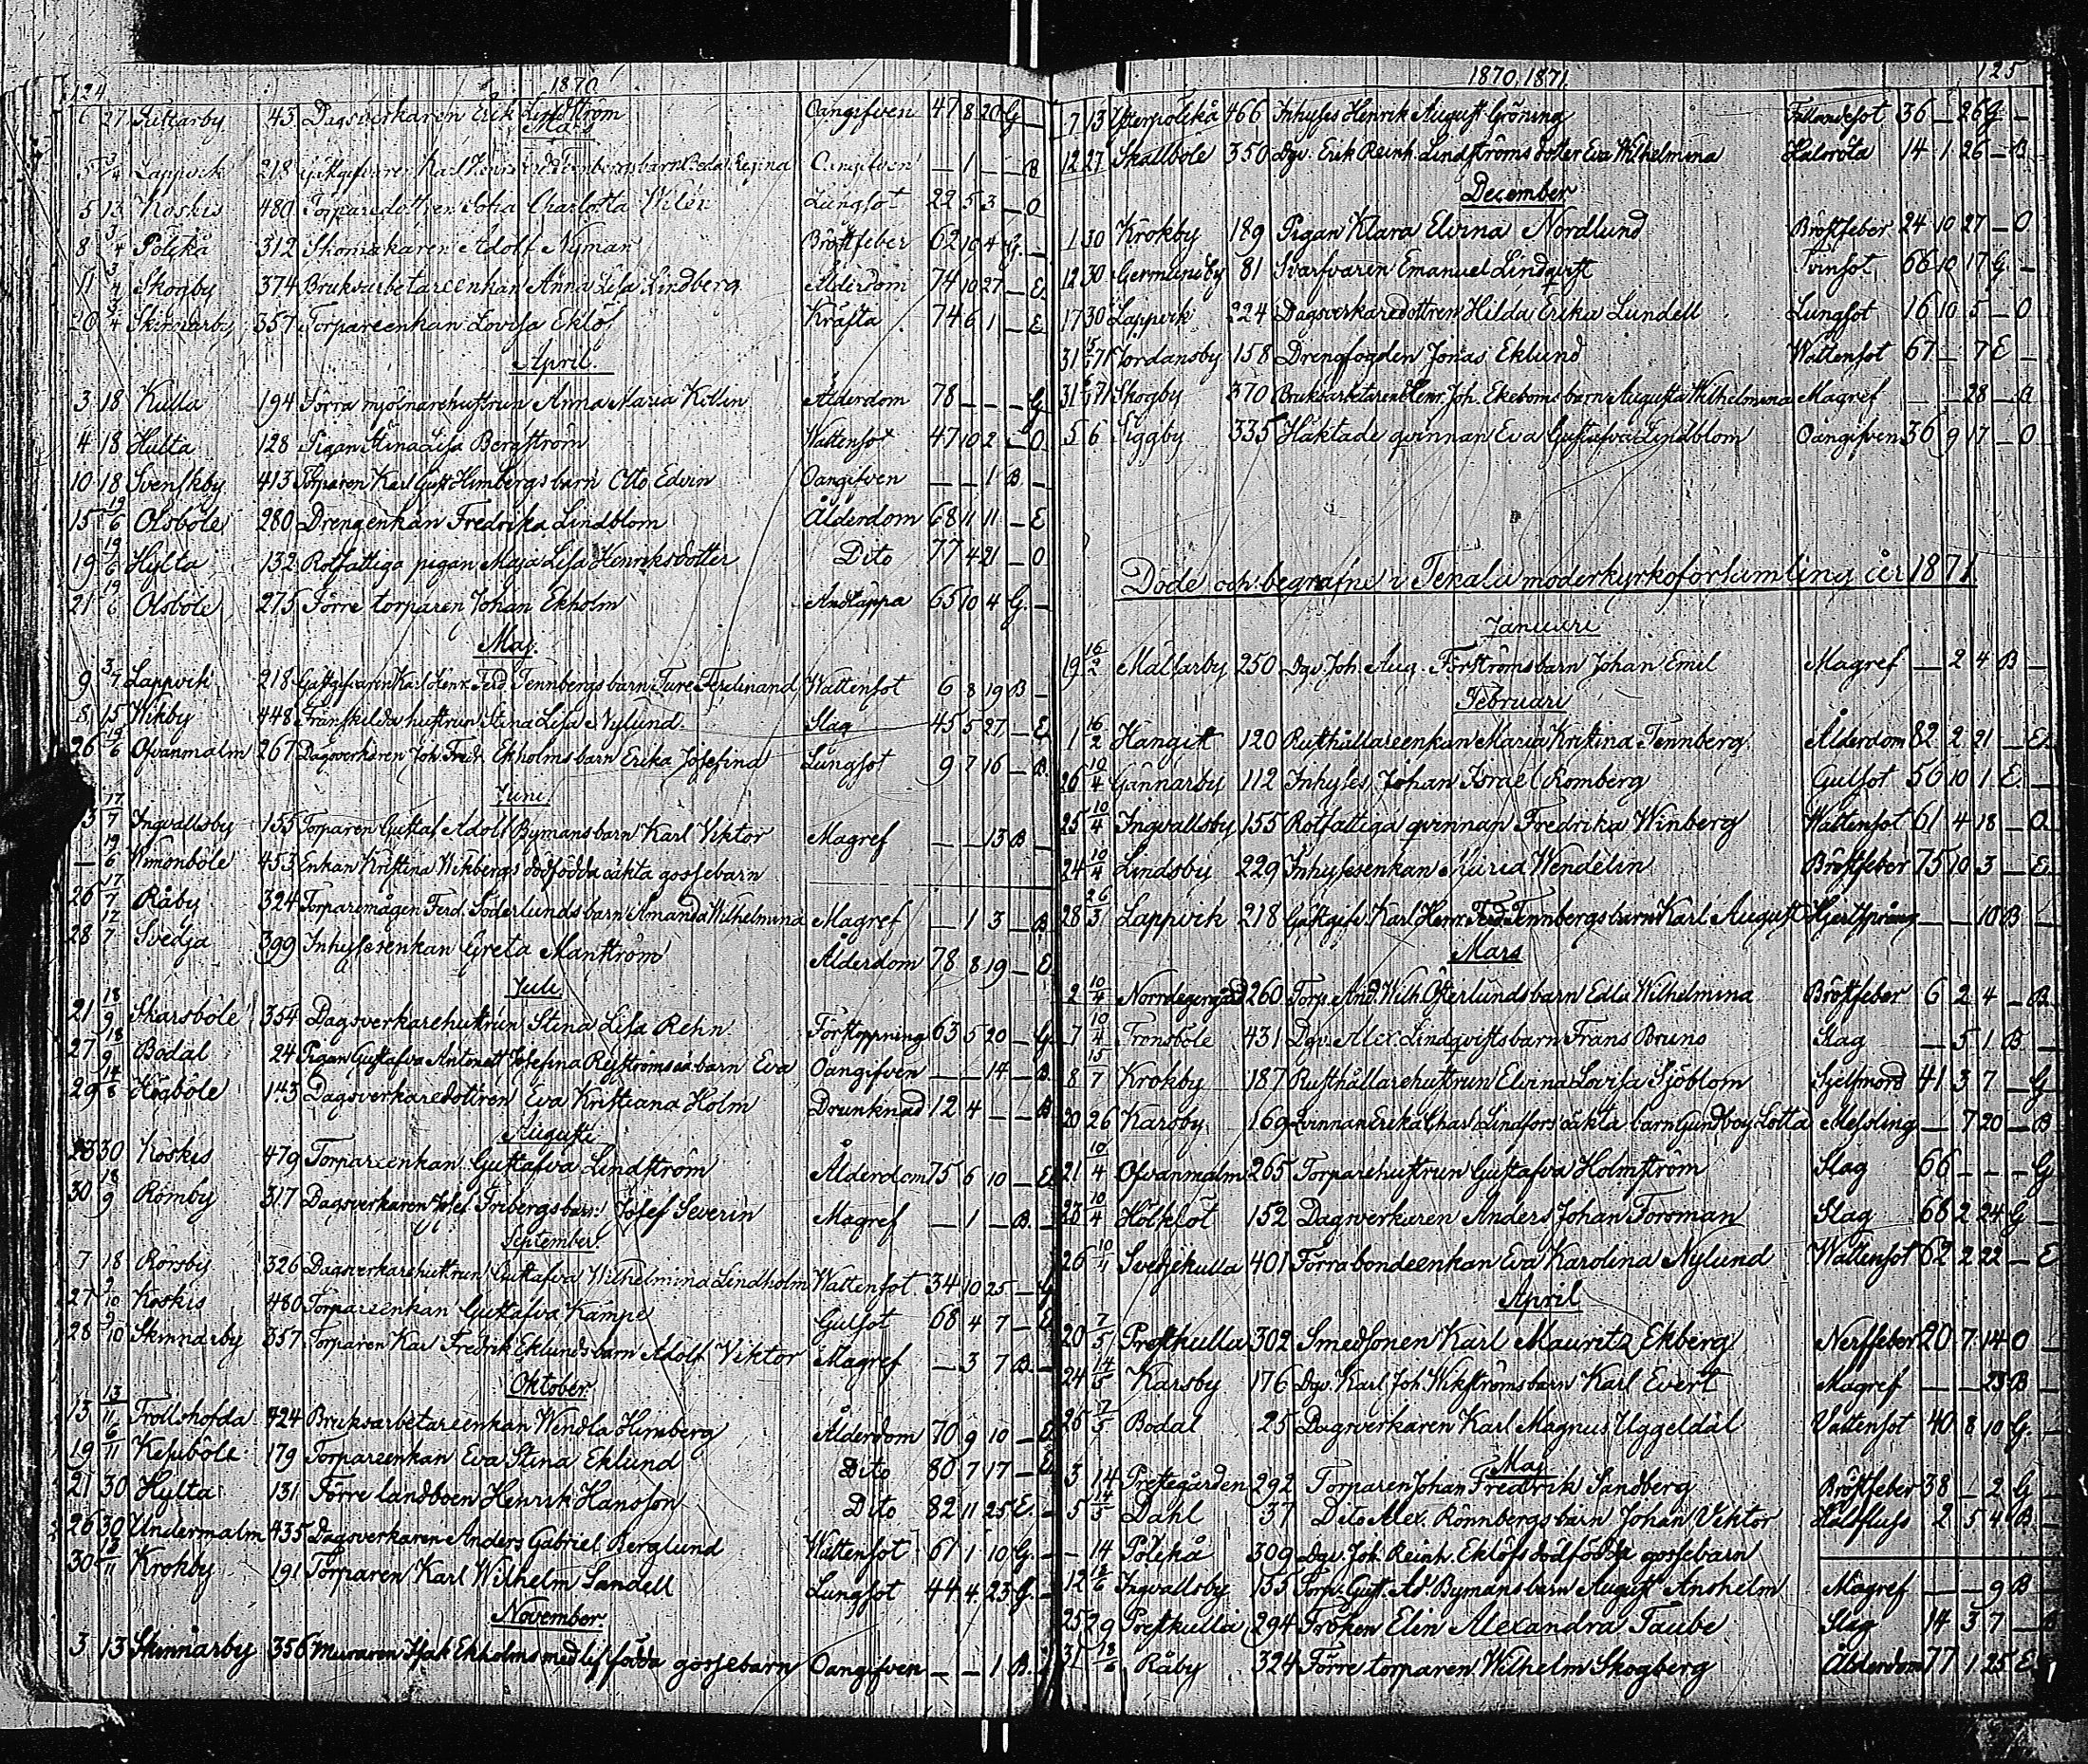 124
1870
6 27 43 Dagsverkaren Erik Lindström Oangifven 47 8 20 G —
Mars
5 3/4 Lappvik 218 Oangifven — 1 — — B
5 13 Koskis 480 Torparedottren Sofia Charlotta Wilén Lungsot 22 5 3 — O
8 3/4 Pölekå 312 Skomakaren Adolf Nyman Bröstfeber 62 10 4 G. —
11 3/4 Skogby 374 Bruksarbetareenkan Anna Lisa Lindberg Ålderdom 74 10 27 — E.
20 3/4 Skinnarby 357 Torpareenkan Lovisa Eklöf Kräfta 74 6 1 — E
April.
3 18 Kulla 194 Förra mjölnarehustrun Anna Maria Kollin Ålderdom 78 — — — G
4 18 Hulta 128 Pigan Stina Lisa Bergström Wattensot 47 10 2 — O
10 18 Svenskby 413 Torparen Karl Gust Himbergs barn Otto Edvin Oangifven — — 1 B —
15 19/6 Olsböle 280 Drengenkan Fredrika Lindblom Ålderdom 68 11 11 — E
19 19/6 Hylta 132 Rotfattiga pigan Maja Lisa Henriksdotter Dito 77 4 21 — O
21 19/6 Olsböle 275 Förre torparen Johan Ekholm Andtäppa 65 10 4 G. —
Maj.
9 3/7 Lappvik 218 Gästgifvaren Karl Henr. Ferd Tennbergs barn Ture Ferdinand Wattensot 6 8 19 B —
8 15 Wikby 448 Frånskilda hustrun Stina Lisa Nylund Slag 45 5 27 — E
26 19/6 Ofvanmalm 267 Dagsverkaren Joh. Fredr. Ekholms barn Erika Josefina Lungsot 9 7 16 — B.
Juni.
17/7 Ingvallsby 155 Torparen Gustaf Adolf Bymans barn Karl Viktor Magref — — 13 B —
— 19/6 Wimonböle 453 Enkan Kristina Wikbergs dödfödda oäkta gossebarn
26 17/7 Råby 324 Torparemågen Ferd. Söderlunds barn Amanda Wilhelmina Magref — 1 3 — B
28 17/7 Svedja 399 Inhysesenkan Greta Manström Ålderdom 78 8 19 — E
Juli
21 18/9 Skarsböle 354 Dagsverkarehustrun Stina Lisa Rehn Förstoppning 63 5 20 — G
27 18/9 Bodal 24 Pigan Gustafva Antonett Josefina barn Eva Oangifven — — 14 — B.
29 14/8 Högböle 143 Dagsverkaredottren Eva Kristiana Holm Drunknad 12 4 — — B
Augusti
30 Koskis 479 Torpareenkan Gustafva Lindström Ålderdom 75 6 10 — E
30 18/9 Römby 317 Dagsverkaren Josef Fribergs barn Josef Severin Magref — 1 — B. —
September.
7 18 Rorsby 326 Dagsverkarehustrun Gustafva Wilhelmina Lindholm Wattensot. 34 10 25 — G
27 9/10 Koskis 480 Torpareenkan Gustafva Kämpe Gulsot 68 4 7 — E
28 9/10 Skinnarby 357 Torparen Karl Fredrik Eklunds barn Adolf Viktor Magref — 3 7 B. —
Oktober
13 13/11 Trollshofda 424 Bruksarbetareenkan Wendla Himberg Ålderdom 70 9 10 — E
19 6/11 179 Torpareenkan Eva Stina Eklund Dito 80 7 17 — E
21 30 Hylta 131 Förre landboen Henrik Hansson Dito 82 11 25 E. —
26 30 Undermalm 435 Dagsverkaren Anders Gabriel Berglund Wattensot 61 1 10 G. —
30 13/11 Krokby 191 Torparen Karl Wilhelm Sandell Lungsot 44 4 23 G. —
November.
3 13 Skinnarby 356 Muraren Isak Ekholms med lif födda gossebarn Oangifven — — 1 B.
1870, 1871.
125
7 13 466 Inhyses Henrik August Gröning Fallandesot 36 — 26 G —
12 27 Skallböle 350 Dgv. Erik Reinh. Lindströms dotter Eva Wilhelmina Halsröta 14 1 26 — B
December
1 30 Krokby 189 Pigan Klara Elvina Nordlund Bröstfeber 24 10 27 — O
12 30 Germundsby 81 Svarfvaren Emanuel Lindqvist Tvinsot 66 10 17 G. —
17 30 Lappvik 224 Dagsverkaredottren Hilda Erika Lundell Lungsot 16 10 5 — O
31 71 Jordansby 158 Drengfogden Jonas Eklund Wattensot 67 — 7 E —
31 71 Skogby 370 Bruksarbetaren Henr. Joh. Ekeboms barn Augusta Wilhelmina Magref — — 28 — B
5 6 Siggby 335 Häktade qvinnan Eva Gustafva Lindblom Oangifven 36 9 17 — O
Döde och begrafne i Tenala moderkyrkoförsamling år 1871.
Januari
19 16/2 Malsarby 250 Dgv. Joh. Aug. Forströms barn Johan Emil Magref — 2 4 B —
Februari
1 16/2 Hangist 120 Rusthållareenkan Maria Kristina Tennberg Ålderdom 82 2 21 — E.
26 10/4 Gännarby 112 Inhyses Johan Israel Romberg Gulsot 56 10 1 E. —
25 10/4 Ingvallsby 155 Rotfattiga qvinnan Fredrika Winberg Wattensot 61 4 18 — O
24 10/4 Lindsby 229 Inhysesenkan Maria Wendelin Bröstfeber 75 10 3 — E.
28 26/3 Lappvik 218 Gästgifv. Karl Henr. Ferd. Tennbergs barn Karl August Hjertsprång — — 10 B —
Mars
2 10/4 260 Torp. And. Wilh. Österlunds barn Edla Wilhelmina Bröstfeber 6 2 4 — B.
7 10/4 Trönsböle 431 Dgv. Alex. Lindqvists barn Frans Bruno Slag — 5 1 B. —
8 15/7 Krokby 187 Rusthållarehustrun Elvina Lovisa Sjöblom Sjelfmord 41 3 7 — G
20 26 Karsby 169 Qvinnan Erika Charl. Lindfors oäkta barn Gundborg Lotta Messling — 7 20 — B
21 10/4 Ofvanmalm 265 Torparehustrun Gustafva Holmström Slag 66 — — — G
23 10/4 Hölklöt 152 Dagsverkaren Anders Johan Forsman Slag 68 2 24 G —
26 10/4 Svedjekulla 401 Förra bondeenkan Eva Karolina Nylund Wattensot 62 2 22 — E
April
20 7/5 Prostkulla 302 Smedsonen Karl Mauritz Ekberg Nerffeber 20 7 14 O —
24 14/5 Karsby 176 Dgv. Karl Joh. Wikströms barn Karl Evert Magref — — 23 B —
26 7/5 Bodal 25 Dagsverkaren Karl Magnus Uggeldal Vattensot 40 8 10 G. —
Maj
3 14 Prestegården 292 Torparen Johan Fredrik Sandberg Bröstfeber 38 — 2 G —
5 14/5 Dahl 37 Dito Alex. Rönnbergs barn Johan Viktor Halsfluss 2 5 4 B. —
— 14 Pölekå 309 Dgv. Joh. Reinh. Eklöfs dödfödda gossebarn
12 Ingvallsby 155 Torp. Gust. Ad. Bymans barn August Anshelm Magref — — 9 B —
25 29 Prestkulla 294 Fröken Elin Alexandra Taube Slag 14 3 7 —
31 18/6 Råby 324 Förre torparen Wilhelm Skogberg Ålderdom 77 1 25 E